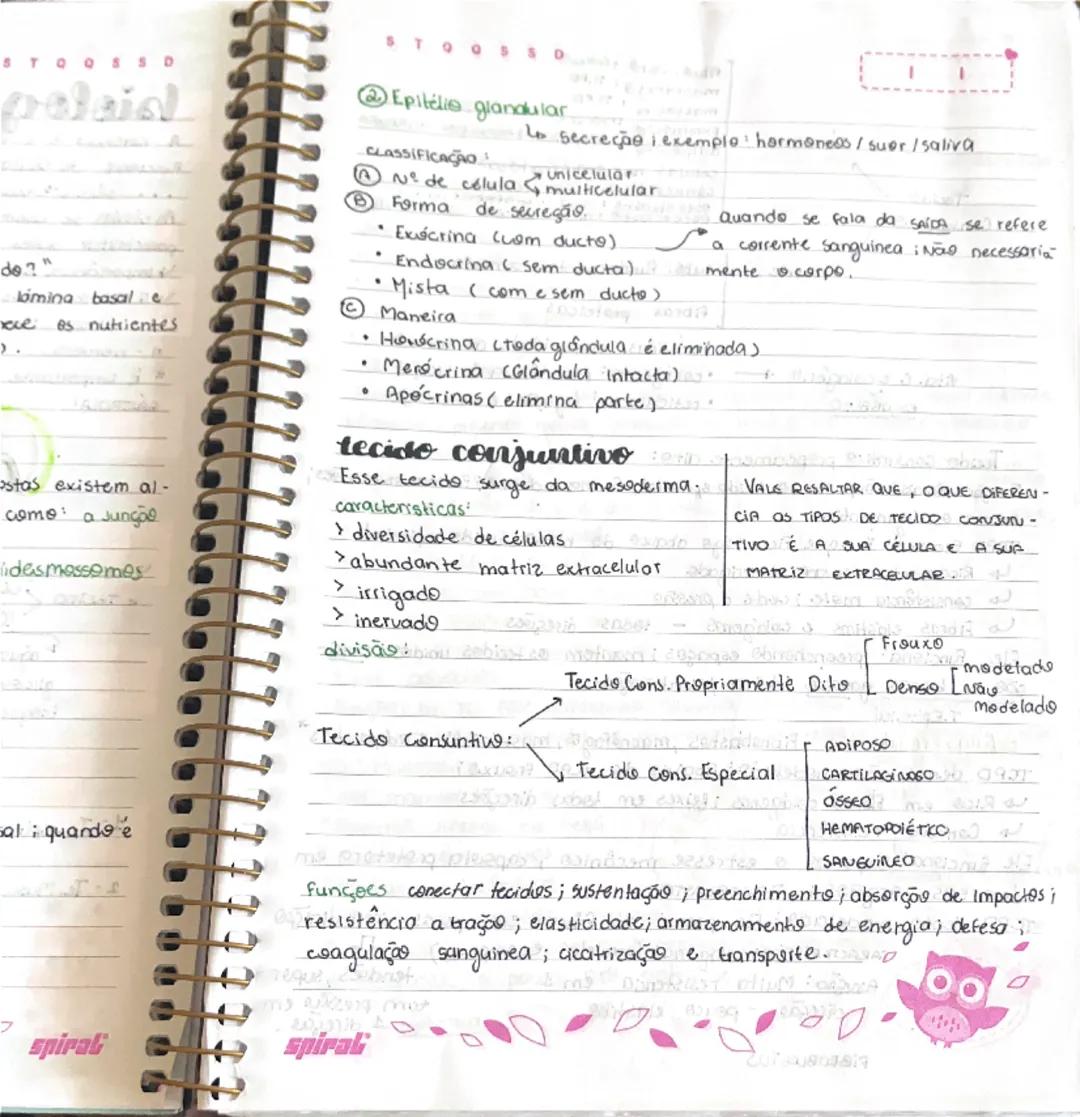 S T Q Q S S D
do?"
lâmina basal e
os nutrientes
).
existem al-
como: a junção
sal ; quando é
spiral
S T Q Q S S D
② Epitélio glandular
↳ secreção ; exemplo: hormoneos / suor / saliva
CLASSIFICAÇÃO:
Ⓐ Nº de célula
unicelular
multicelular
Ⓑ Forma de secreção.
• Exócrina (com ducto)
• Endocrina ( sem ducta)
• Mista ( com e sem ducto)
Quando se fala da SAÍDA se refere
a corrente sanguinea ; NÃO necessaria-
mente o corpo.
Ⓒ Maneira
• Holócrina (toda glândula é eliminada)
• Merócrina (Glândula intacta)
• Apócrinas ( elimina parte)
tecido conjuntivo
Esse tecido surge da mesoderma.
características:
> diversidade de células
> abundante matriz extracelular
> irrigado
> inervado
VALE RESALTAR QUE, O QUE DIFEREN-
CIA OS TIPOS DE TECIDO CONJUN-
TIVO É A SUA CÉLULA E A SUA
MATRIZ EXTRACELULAR.
divisão:
Tecido Conjuntivo:
Tecido Cons. Propriamente Dito
Frouxo
Denso
modelado
Não
modelado
Tecido Cons. Especial
ADIPOSO
CARTILAGINOSO
ÓSSEO
HEMATOPOIÉTICO
SANGUINEO
funções conectar tecidos ; sustentação ; preenchimento ; absorção de impactos ;
resistência a tração ; elasticidade; armazenamento de energia; defesa ;
coagulação sanguinea ; cicatrização e transporte.
spiral